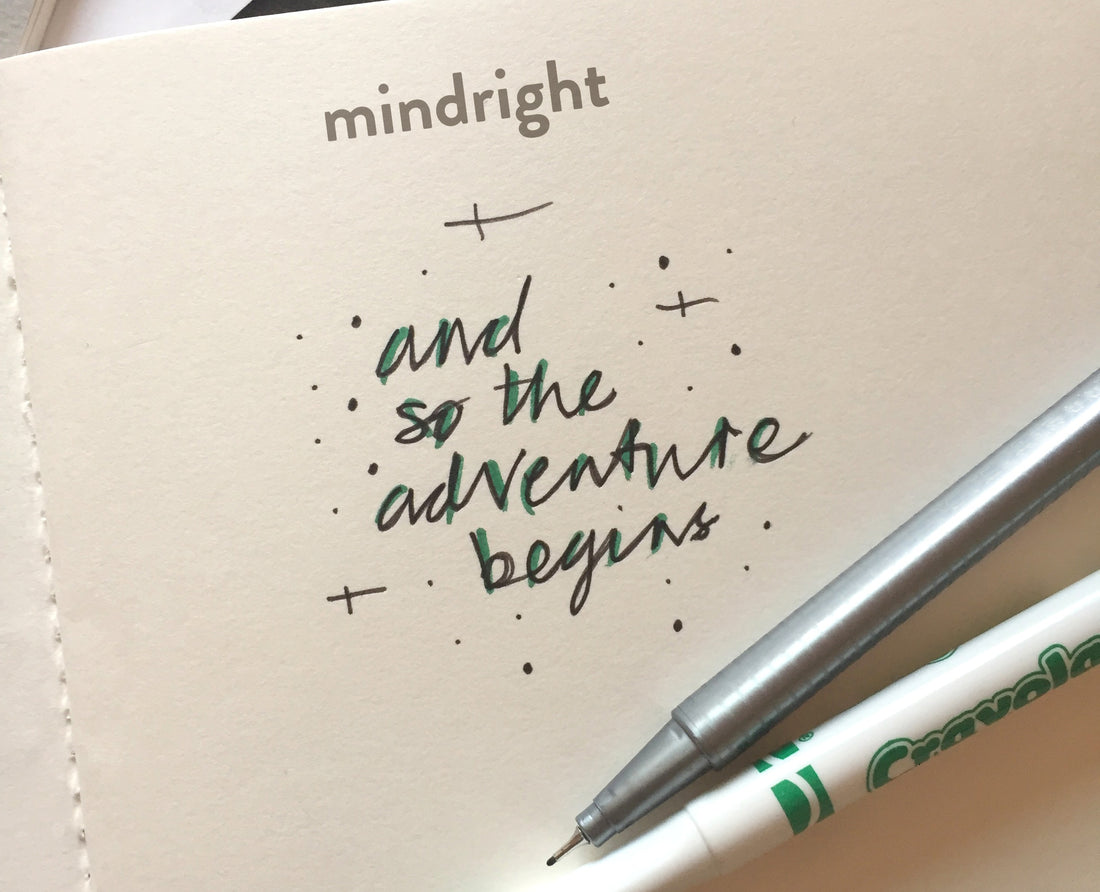 mindright
and
so the
adventure
begins
Crayola